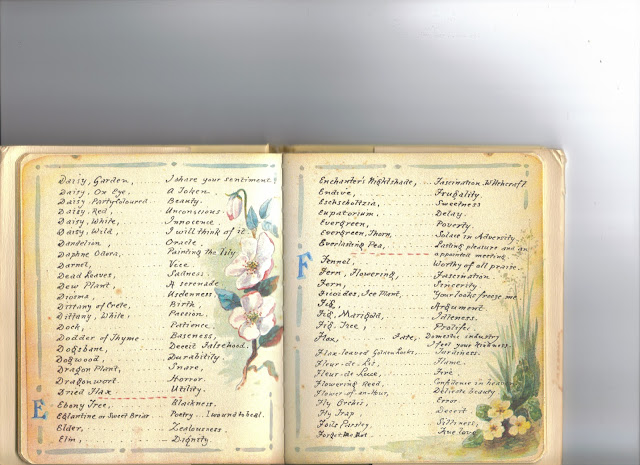 Daisy, Garden, I share your sentiment
Daisy, Ox Eye, A Token.
Daisy, PartyColoured Beauty.
Daisy, Red, Unconscious.
Daisy, White, Innocence.
Daisy, Wild, I will think of it.
Dandelion Oracle
Daphne Odora, Painting the Lily
Darnel, Vice.
Dead Leaves, Sadness.
Dew Plant A serenade
Diosma, Uselenness
Dittany of Crete, Birth,
Dittany, White, Passion.
Dock, Patience.
Dodder of Thyme Baseness,
Dogsbane, Deceit Falsehood.
Dogwood, Durability.
Dragon Plant, Snare,
Dragonwort Horror.
Dried Flax Utility.
E
Ebony Tree, Blackness.
Eglantine or Sweet Briar Poetry. I wound to heal.
Elder, Zealousness.
Elm, Dignity
Enchanter's Nightshade, Fascination. Witchcraft
Endive, Frugality.
Eschscholtzia, Sweetness
Eupatorium. Delay.
Evergreen, Poverty.
Evergreen, Thorn, Solace in Adversity.
Everlasting Pea, Lasting pleasure and an
appointed meeting.
F
Fennel, Worthy of all praise.
Fern, Flowering, Fascination
Fern, Sincerity
Ficoides, Ice Plant, Your looks freeze me
Fig, Argument
Fig, Marigold, Idleness.
Fig, Tree, Prolific.
Flax, Fate, Domestic industry
I feel your kindness.
Flax-leaved Goldenlocks, Tardiness.
Fleur-de-Lis. Flame.
Fleur-de Luce, Fire
Flowering Reed, Confidence in heaven
Flower-of-an-Hour, Delicate beauty
Fly Orchis, Error.
Fly Trap. Deceit
Fools Parsley. Silliness,
Forget Me Not. True love